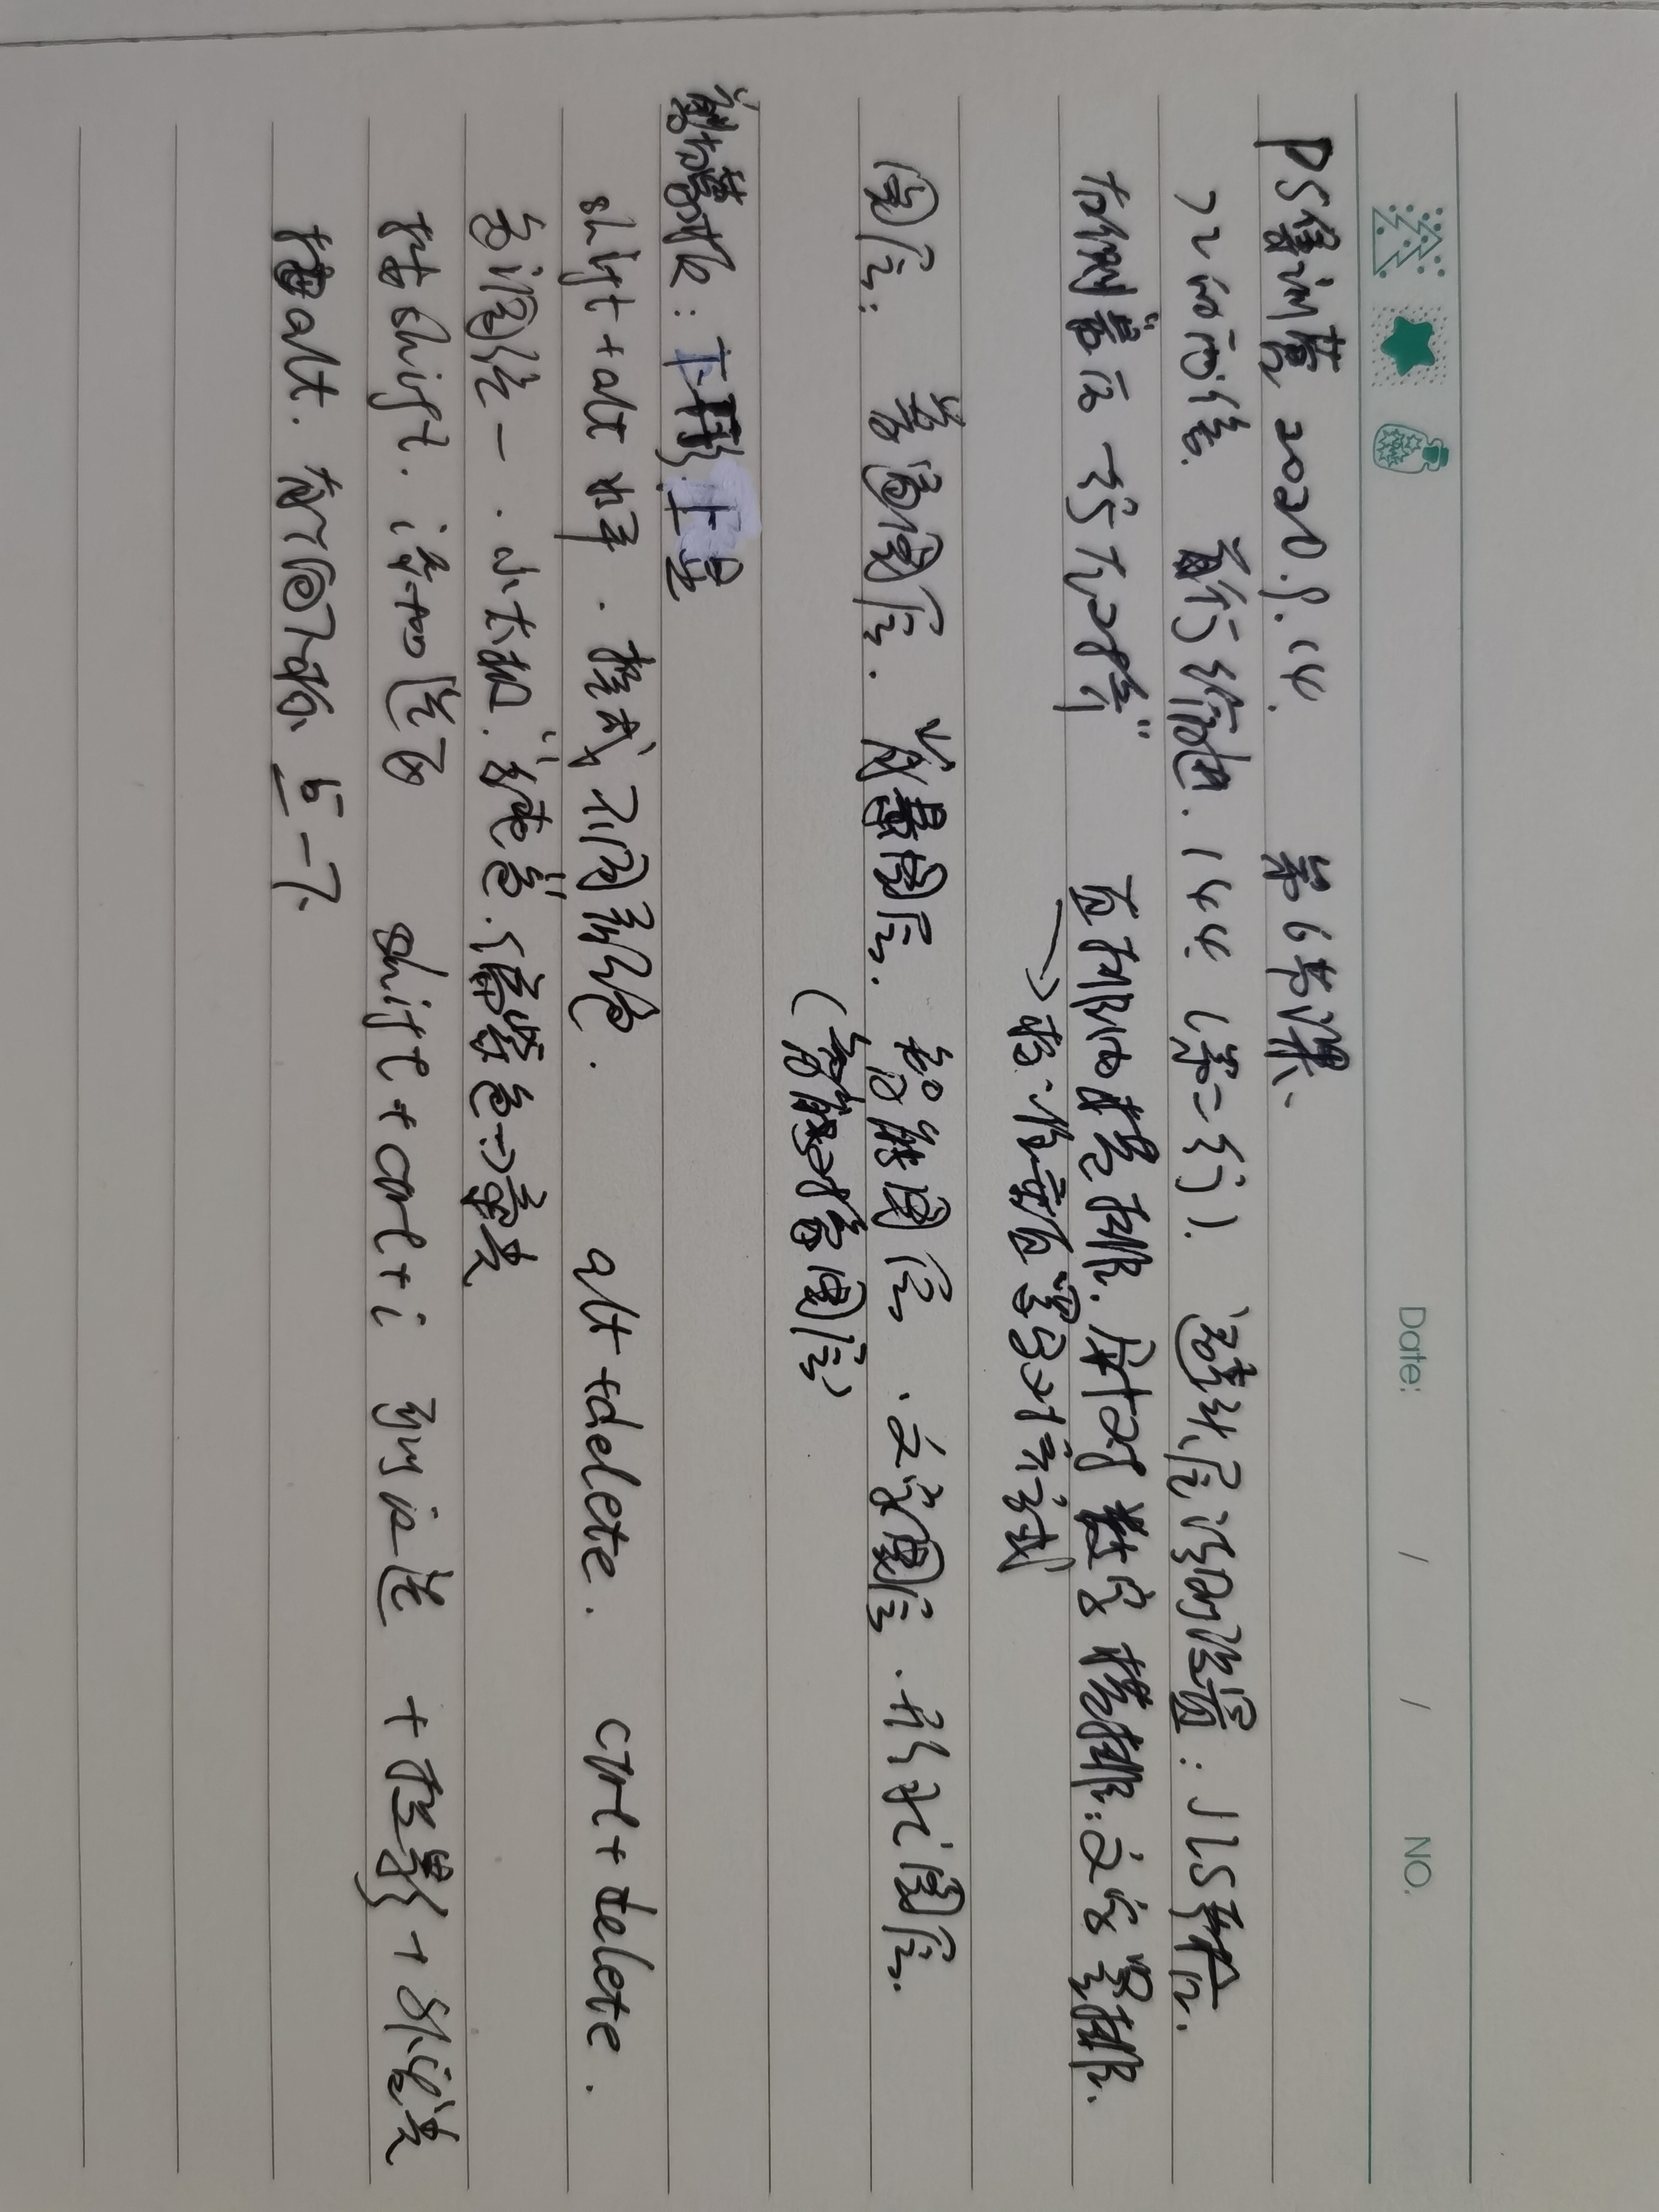 Date: / / NO.
PS集训营 2020.9.14. 第6节课、
72的两倍. 首行缩进. 144 (第二行). 避头尾法则设置: JIS严格.
右侧"最后一行左对齐" 直排内横排. 针对数字横排: 文字竖排.
→标准垂直罗马对齐方式
图层: 普通图层. 背景图层. 智能图层 . 文字图层 . 形状图层.
(智能对象图层)
剪切蒙板: 下形 上显
shift+alt 水平 . 换成不同颜色. alt+delete. ctrl+delete.
色调统一 . 小太极. "纯色". 偏紫色→章光
按shift. 添加选区 shift+ctrl+i 反选 +投影+外发光
按alt. 有个向下标 点一下